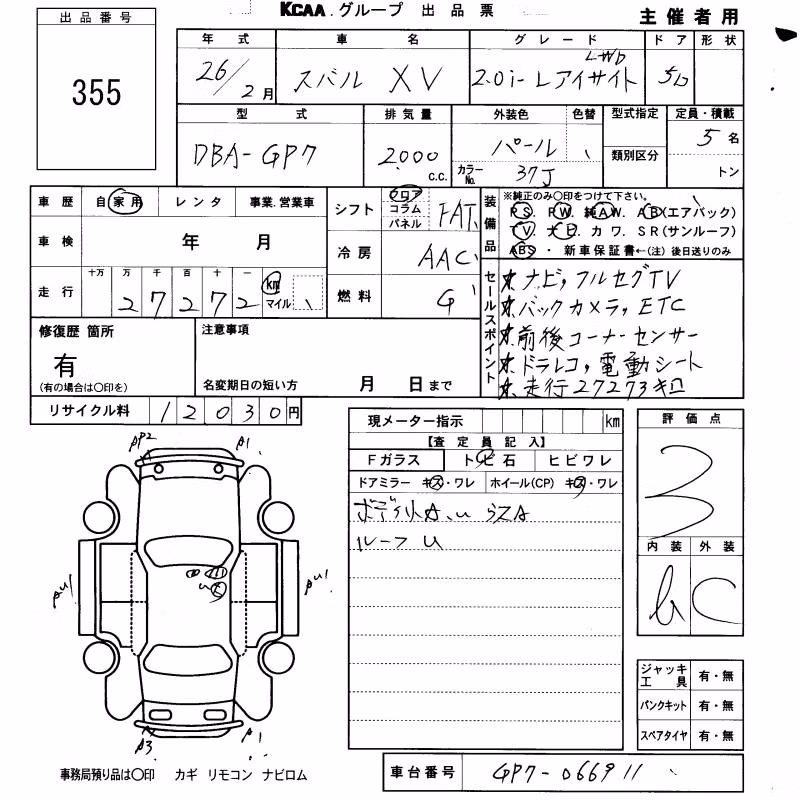 KCAA.グループ 出品票
主催者用
出品番号
355
年式 車名 グレード ドア 形状
26/2月 スバル XV 2.0i-L アイサイト LWD 5D
型式 排気量 外装色 色替 型式指定 定員・積載
DBA-GP7 2000 c.c. パール 5名
カラーNo. 37J 類別区分 トン
車歴 自家用 レンタ 事業.営業車
車検 年 月
走行 十万 万 千 百 十 一
27272 km マイル
シフト フロア コラム パネル FAT
冷房 AAC
燃料 G
装備品
※純正のみ○印をつけて下さい。
PS. PW. 純AW. AB(エアバック)
TV. ナビ. カワ. SR(サンルーフ)
ABS・新車保証書←(注)後日送りのみ
セールスポイント
ナビ,フルセグTV
バックカメラ,ETC
前後コーナーセンサー
ドラレコ,電動シート
走行27273キロ
修復歴 箇所
有
(有の場合は○印を)
注意事項
名変期日の短い方 月 日まで
リサイクル料 12030円
現メーター指示 km
【査定員記入】
Fガラス トビ石 ヒビワレ
ドアミラー キズ・ワレ ホイール(CP) キズ・ワレ
ルーフ U
評価点
3
内装 外装
C
ジャッキ工具 有・無
パンクキット 有・無
スペアタイヤ 有・無
事務局預り品は○印 カギ リモコン ナビロム
車台番号 GP7-066911